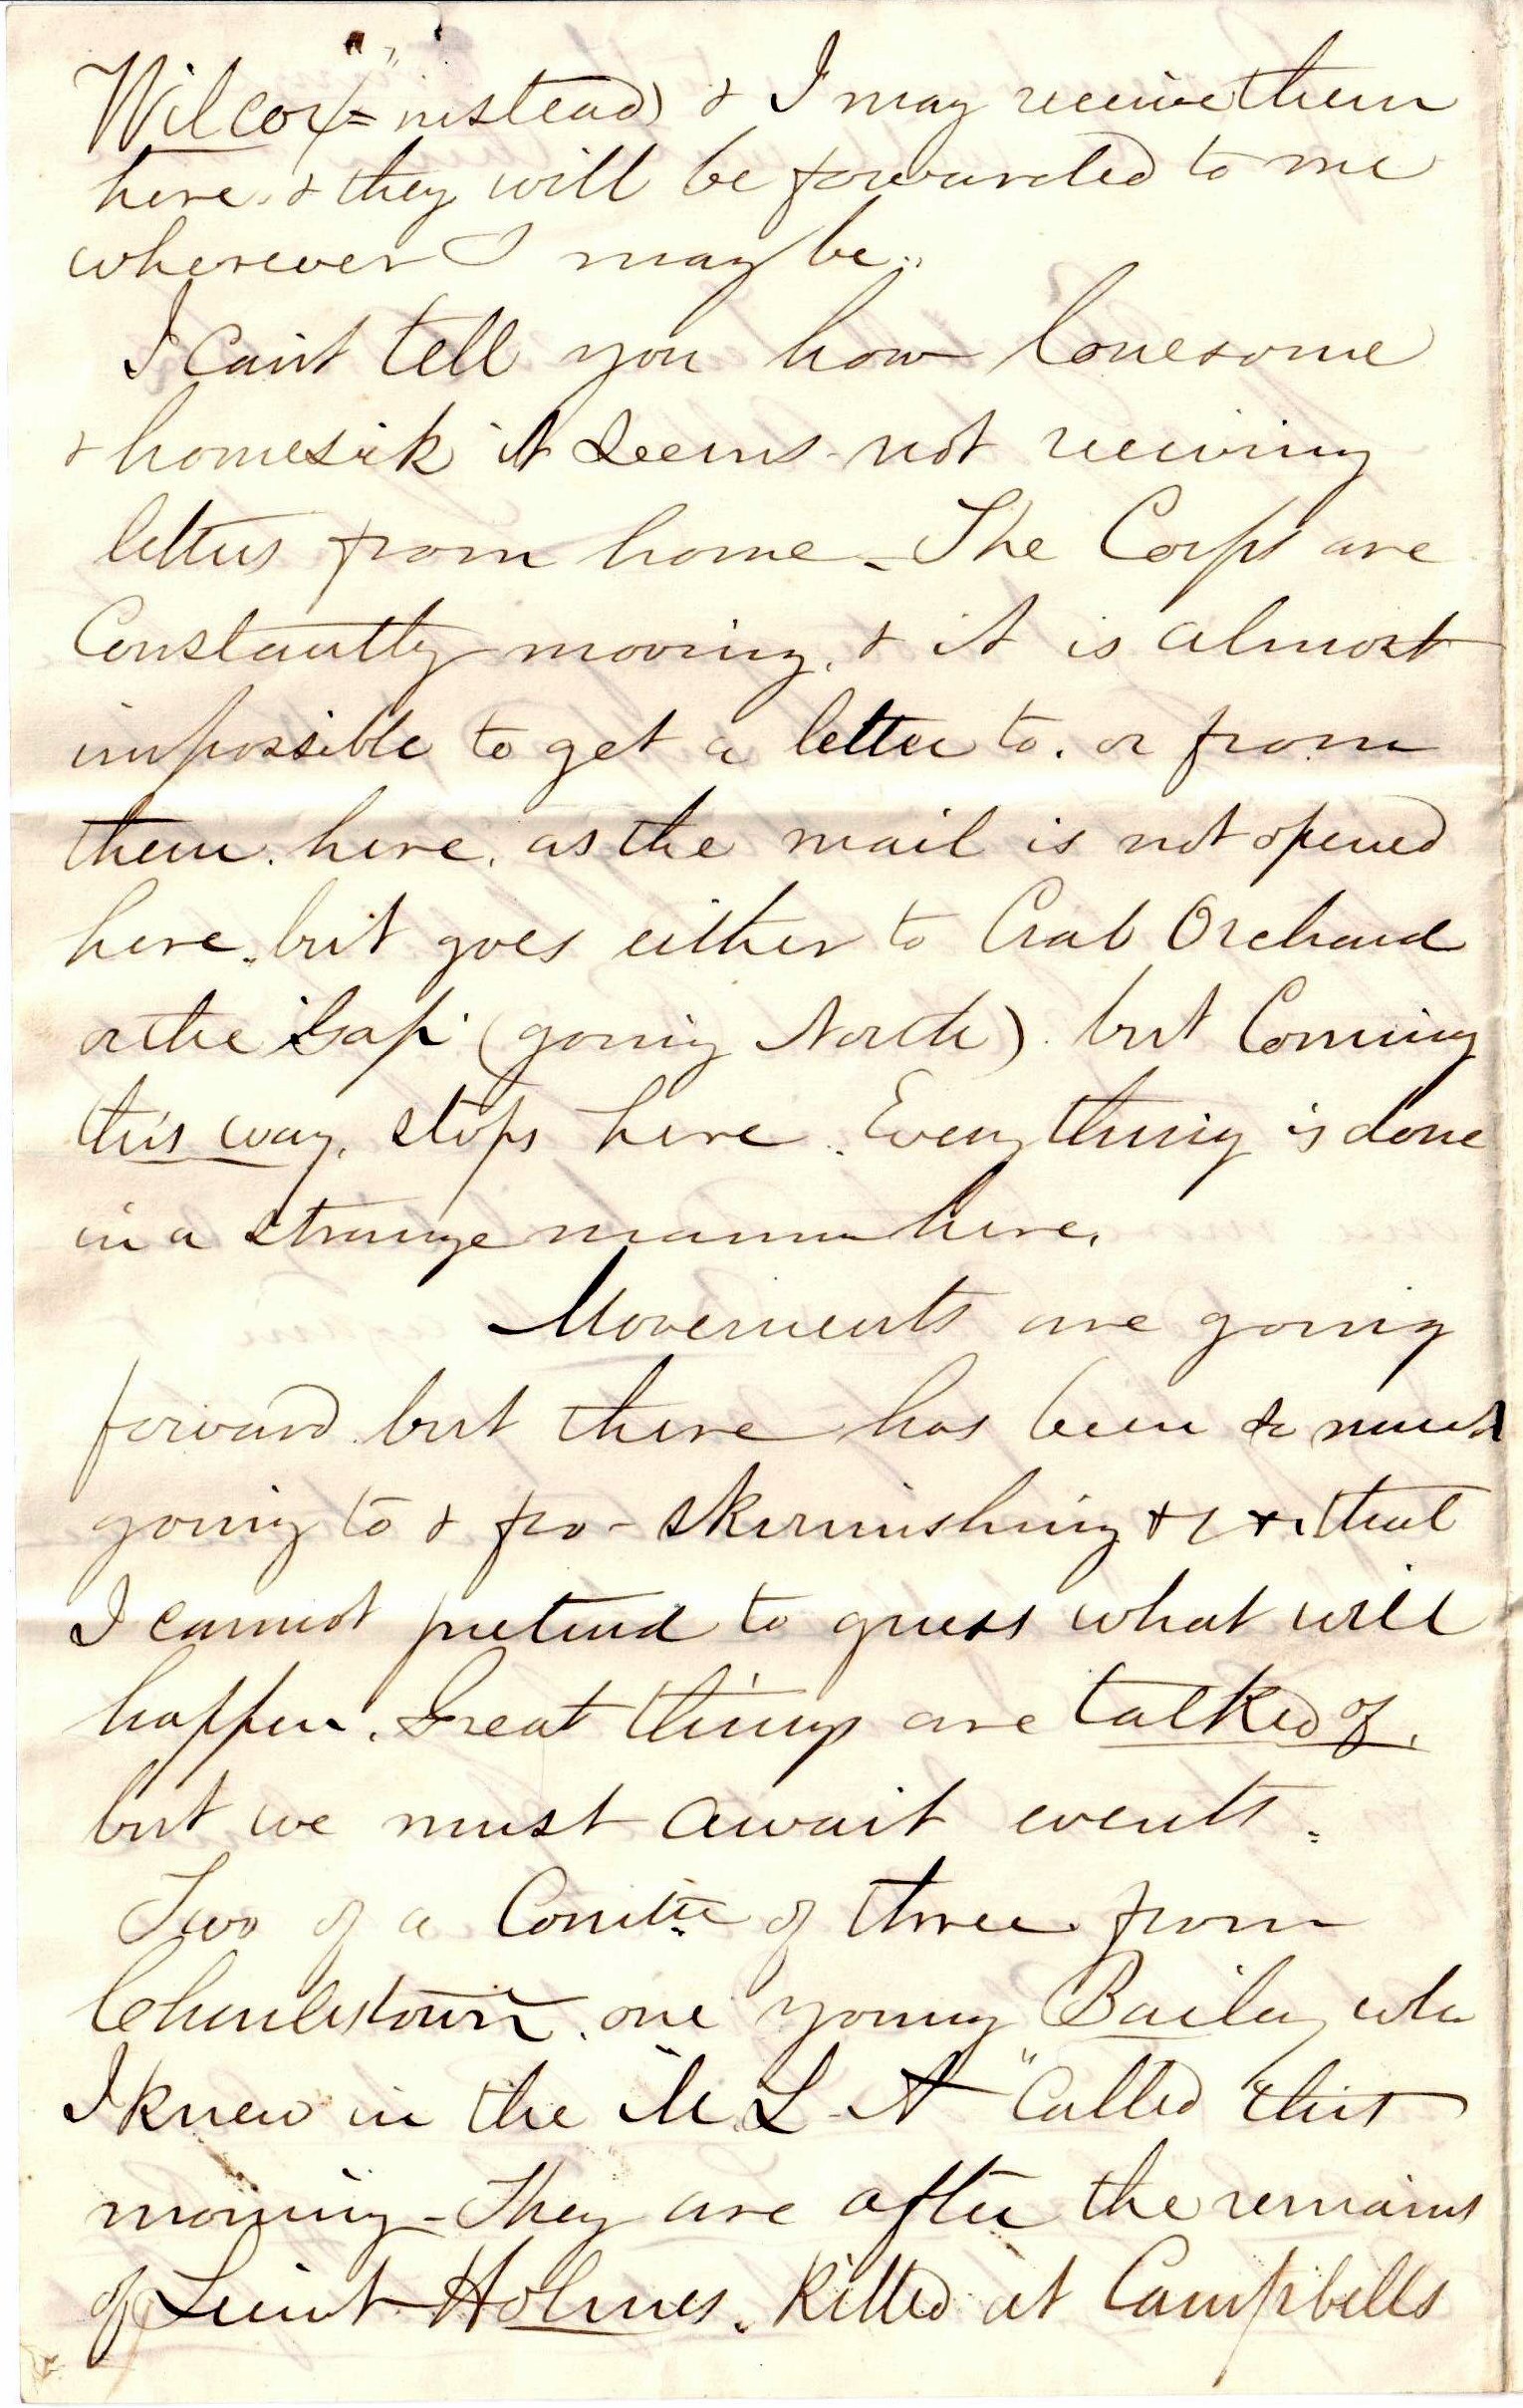 Wilcox"= instead) & I may receive them
here. & they will be forwarded to me
wherever I may be..
I can't tell you how lonesome
& homesick it seems not receiving
letters from home - The Corps are
Constantly moving, & it is almost
impossible to get a letter to. or from
them. here, as the mail is not opened
here. but goes either to Crab Orchard
or the "Gap" (going North). but Coming
this way, stops here. Every thing is done
in a strange manner here.
Movements are going
forward but there has been so much
going to & fro - skirmishing &c &c. that
I cannot pretend to guess what will
happen. Great things are talked of.
but we must await events.
Two of a Comttee of three from
Charlestown. one young Bailey who
I knew in the "M. L. A" Called this
morning - They are after the remains
of Lieut Holmes. Killed at Campbells